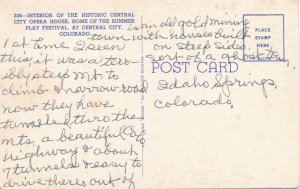 336—INTERIOR OF THE HISTORIC CENTRAL
CITY OPERA HOUSE, HOME OF THE SUMMER
PLAY FESTIVAL AT CENTRAL CITY,
COLORADO.
is an old gold mining
town with houses built
on steep sides,
sort of a ghost
PLACE
STAMP
HERE
POST CARD
1st time I seen
this, it was a terr-
ibly steep Mt to
climb & narrow road
now they have
tunneled thro the
mts. a beautiful
highway & about
7 tunnels & easy to
drive theres out of
Idaho Springs,
Colorado,